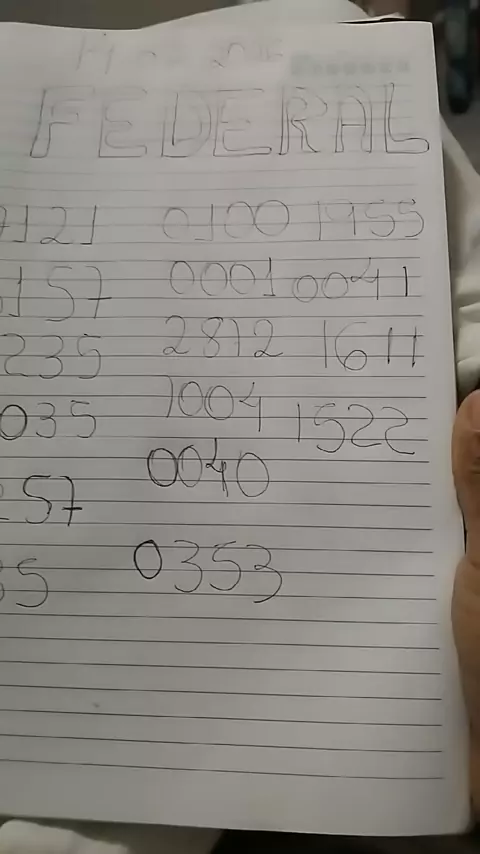 FEDERAL
121 0100 1955
157 0001 0041
235 2872 1611
035 1004 1522
57 0040
35 0353